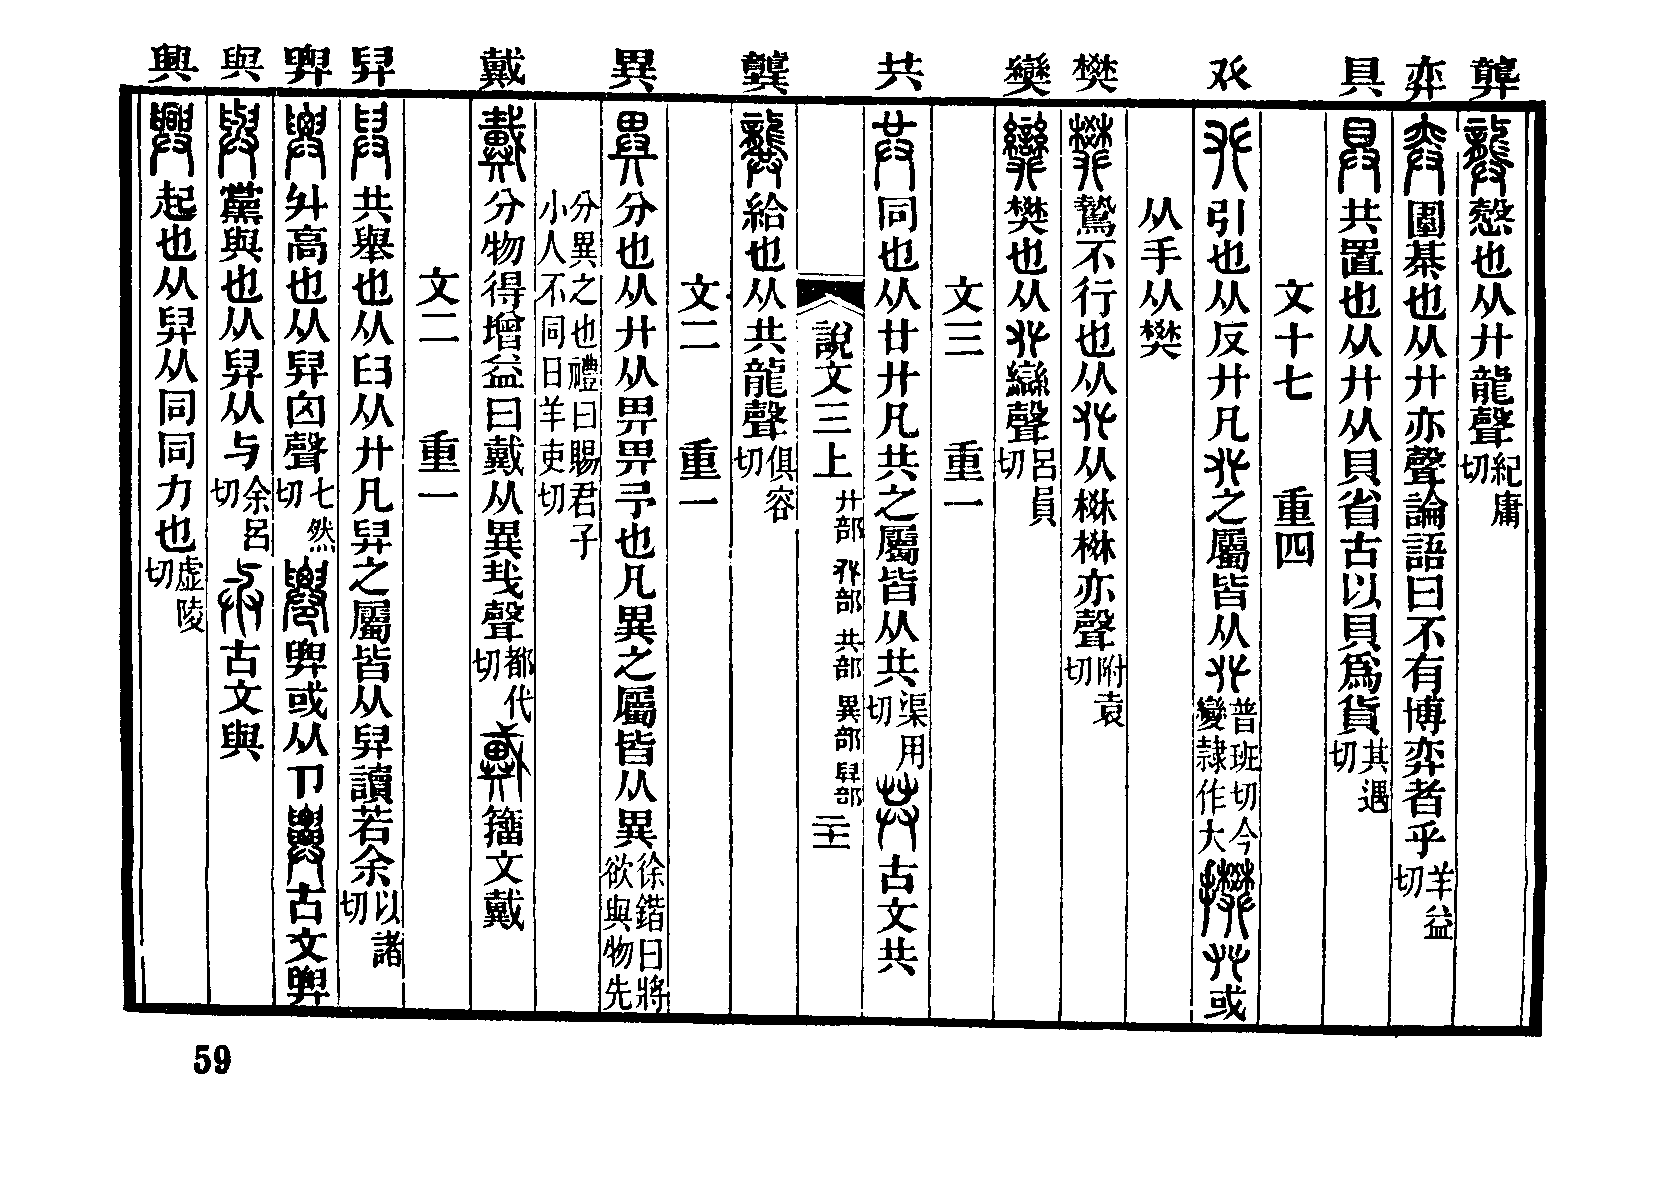 龏 弈 具 𠬜 樊 㰖 共 龔 異 戴 舁 𦥸 與 興
龏 愨也从廾龍聲紀庸切
弈 圍棊也从廾亦聲論語曰不有博弈者乎羊益切
具 共置也从廾从貝省古以貝爲貨其遇切
文十七 重四
𠬜 引也从反廾凡𠬜之屬皆从𠬜普班切今變隸作大 𠬜或
从手从樊
樊 騺不行也从𠬜从棥棥亦聲附袁切
樊也从𠬜䜌聲呂員切
文三 重一
共 同也从廿廾凡共之屬皆从共渠用切 古文共
說文三上 廾部 𠬜部 共部 異部 舁部 二十
龔 給也从共龍聲俱容切
文二 重一
異 分也从廾从畀畀予也凡異之屬皆从異徐鍇曰將欲與物先
分異之也禮曰賜君子小人不同日羊吏切
戴 分物得增益曰戴从異𢦏聲都代切 籒文戴
文二 重一
舁 共舉也从𦥑从廾凡舁之屬皆从舁讀若余以諸切
𦥸 升高也从舁囟聲七然切 𦥸或从卪 古文𦥸
與 黨與也从舁从与余呂切 古文與
興 起也从舁从同同力也虛陵切
59